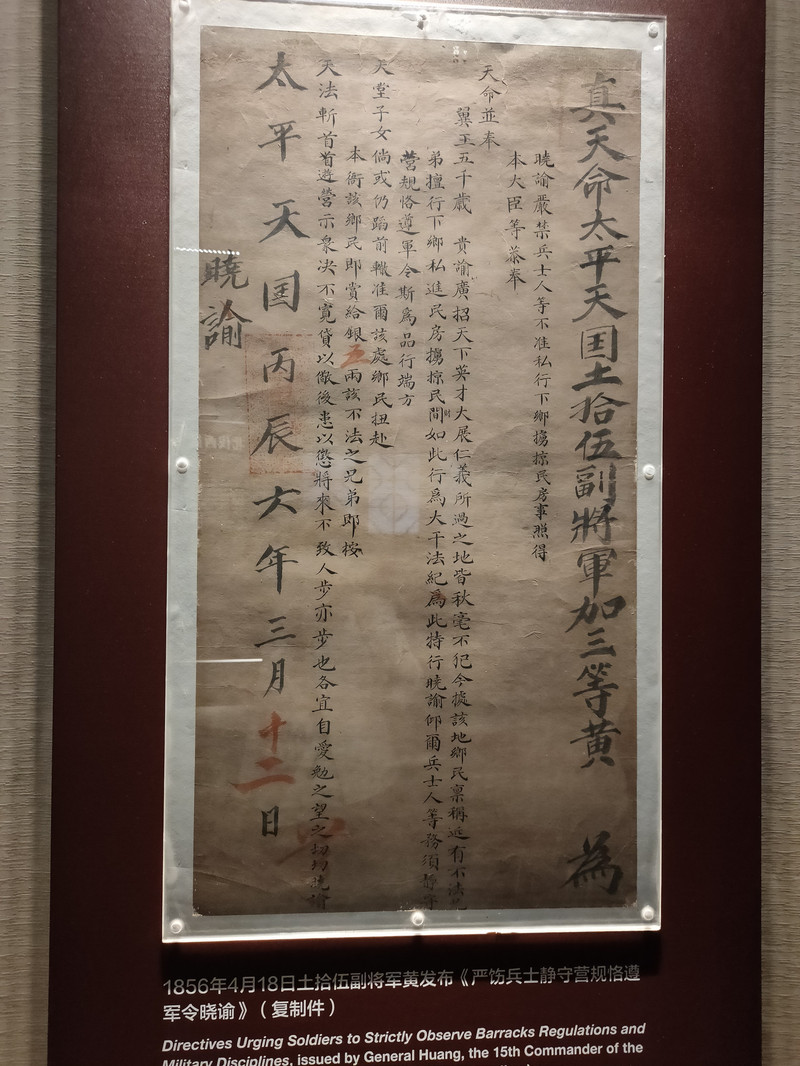 真天命太平天囯土拾伍副將軍加三等黃　為
曉諭嚴禁兵士人等不准私行下鄉擄掠民房事照得
本大臣等恭奉
天命並奉
翼王五千歲　貴諭廣招天下英才大展仁義所過之地皆秋毫不犯今據該地鄉民禀稱近有不法兄
弟擅行下鄉私進民房擄掠民間如此行為大干法紀為此特行曉諭仰爾兵士人等務須靜守
營規恪遵軍令斯為品行端方
天堂子女倘或仍蹈前轍准爾該處鄉民扭赴
本衙該鄉民即賞給銀五兩該不法之兄弟即按
天法斬首首遊營示衆决不寬貸以儆後患以懲將來不致人步亦步也各宜自愛勉之望之切切曉諭
太平天囯丙辰六年三月十二日
曉諭
1856年4月18日土拾伍副将军黄发布《严饬兵士静守营规恪遵
军令晓谕》（复制件）
Directives Urging Soldiers to Strictly Observe Barracks Regulations and
Military Disciplines, issued by General Huang, the 15th Commander of the